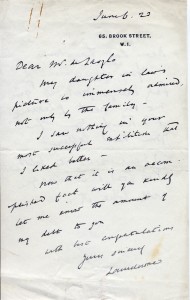 June 6. 23
65, BROOK STREET,
W.1.
Dear Mr. de Laszlo
My daughter in law's
picture is immensely admired
not only by the family —
I saw nothing in your
most successful exhibition that
I liked better —
Now that it is an accom-
plished fact will you kindly
let me know the amount of
my debt to you
with best congratulations
yours sincerely